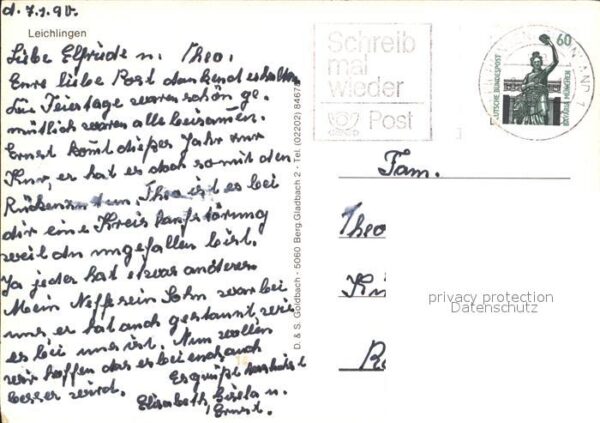 d. 7.1.90.
Leichlingen
Liebe Elfriede u. Theo.
Eure liebe Post dankend erhalten
Die Feiertage waren schön ge.
mütlich waren alle beisamen.
Ernst kommt dieses Jahr zur
Kur, er hat es doch so mit den
Rücken. Theo ist es bei
dir eine Kreislaufstörung
weil du umgefallen bist.
Ja jeder hat etwas anderes
Mein Neffe sein Sohn war bei
uns er hat auch gestaunt wie
es bei uns ist. Nun wollen
wir hoffen das es bei euch auch
besser wird. Es grüßt herzlichst
Elisabeth, Gisela u.
Ernst.
D. & S. Goldbach - 5060 Berg. Gladbach 2 - Tel. (02202) 8467
Schreib
mal
wieder
Post
60
DEUTSCHE BUNDESPOST
BAVARIA MÜNCHEN
Fam.
Theo
privacy protection
Datenschutz